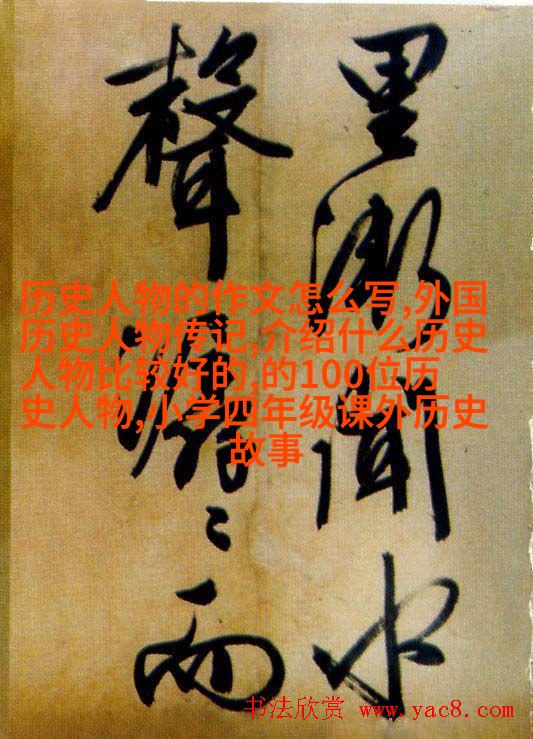 里漸聞水
聲潺〻而
历史人物的作文怎么写,外国
历史人物传记,介绍什么历史
人物比较好的,的100位历
史人物,小学四年级课外历史
故事
书法欣赏 www.yac8.com